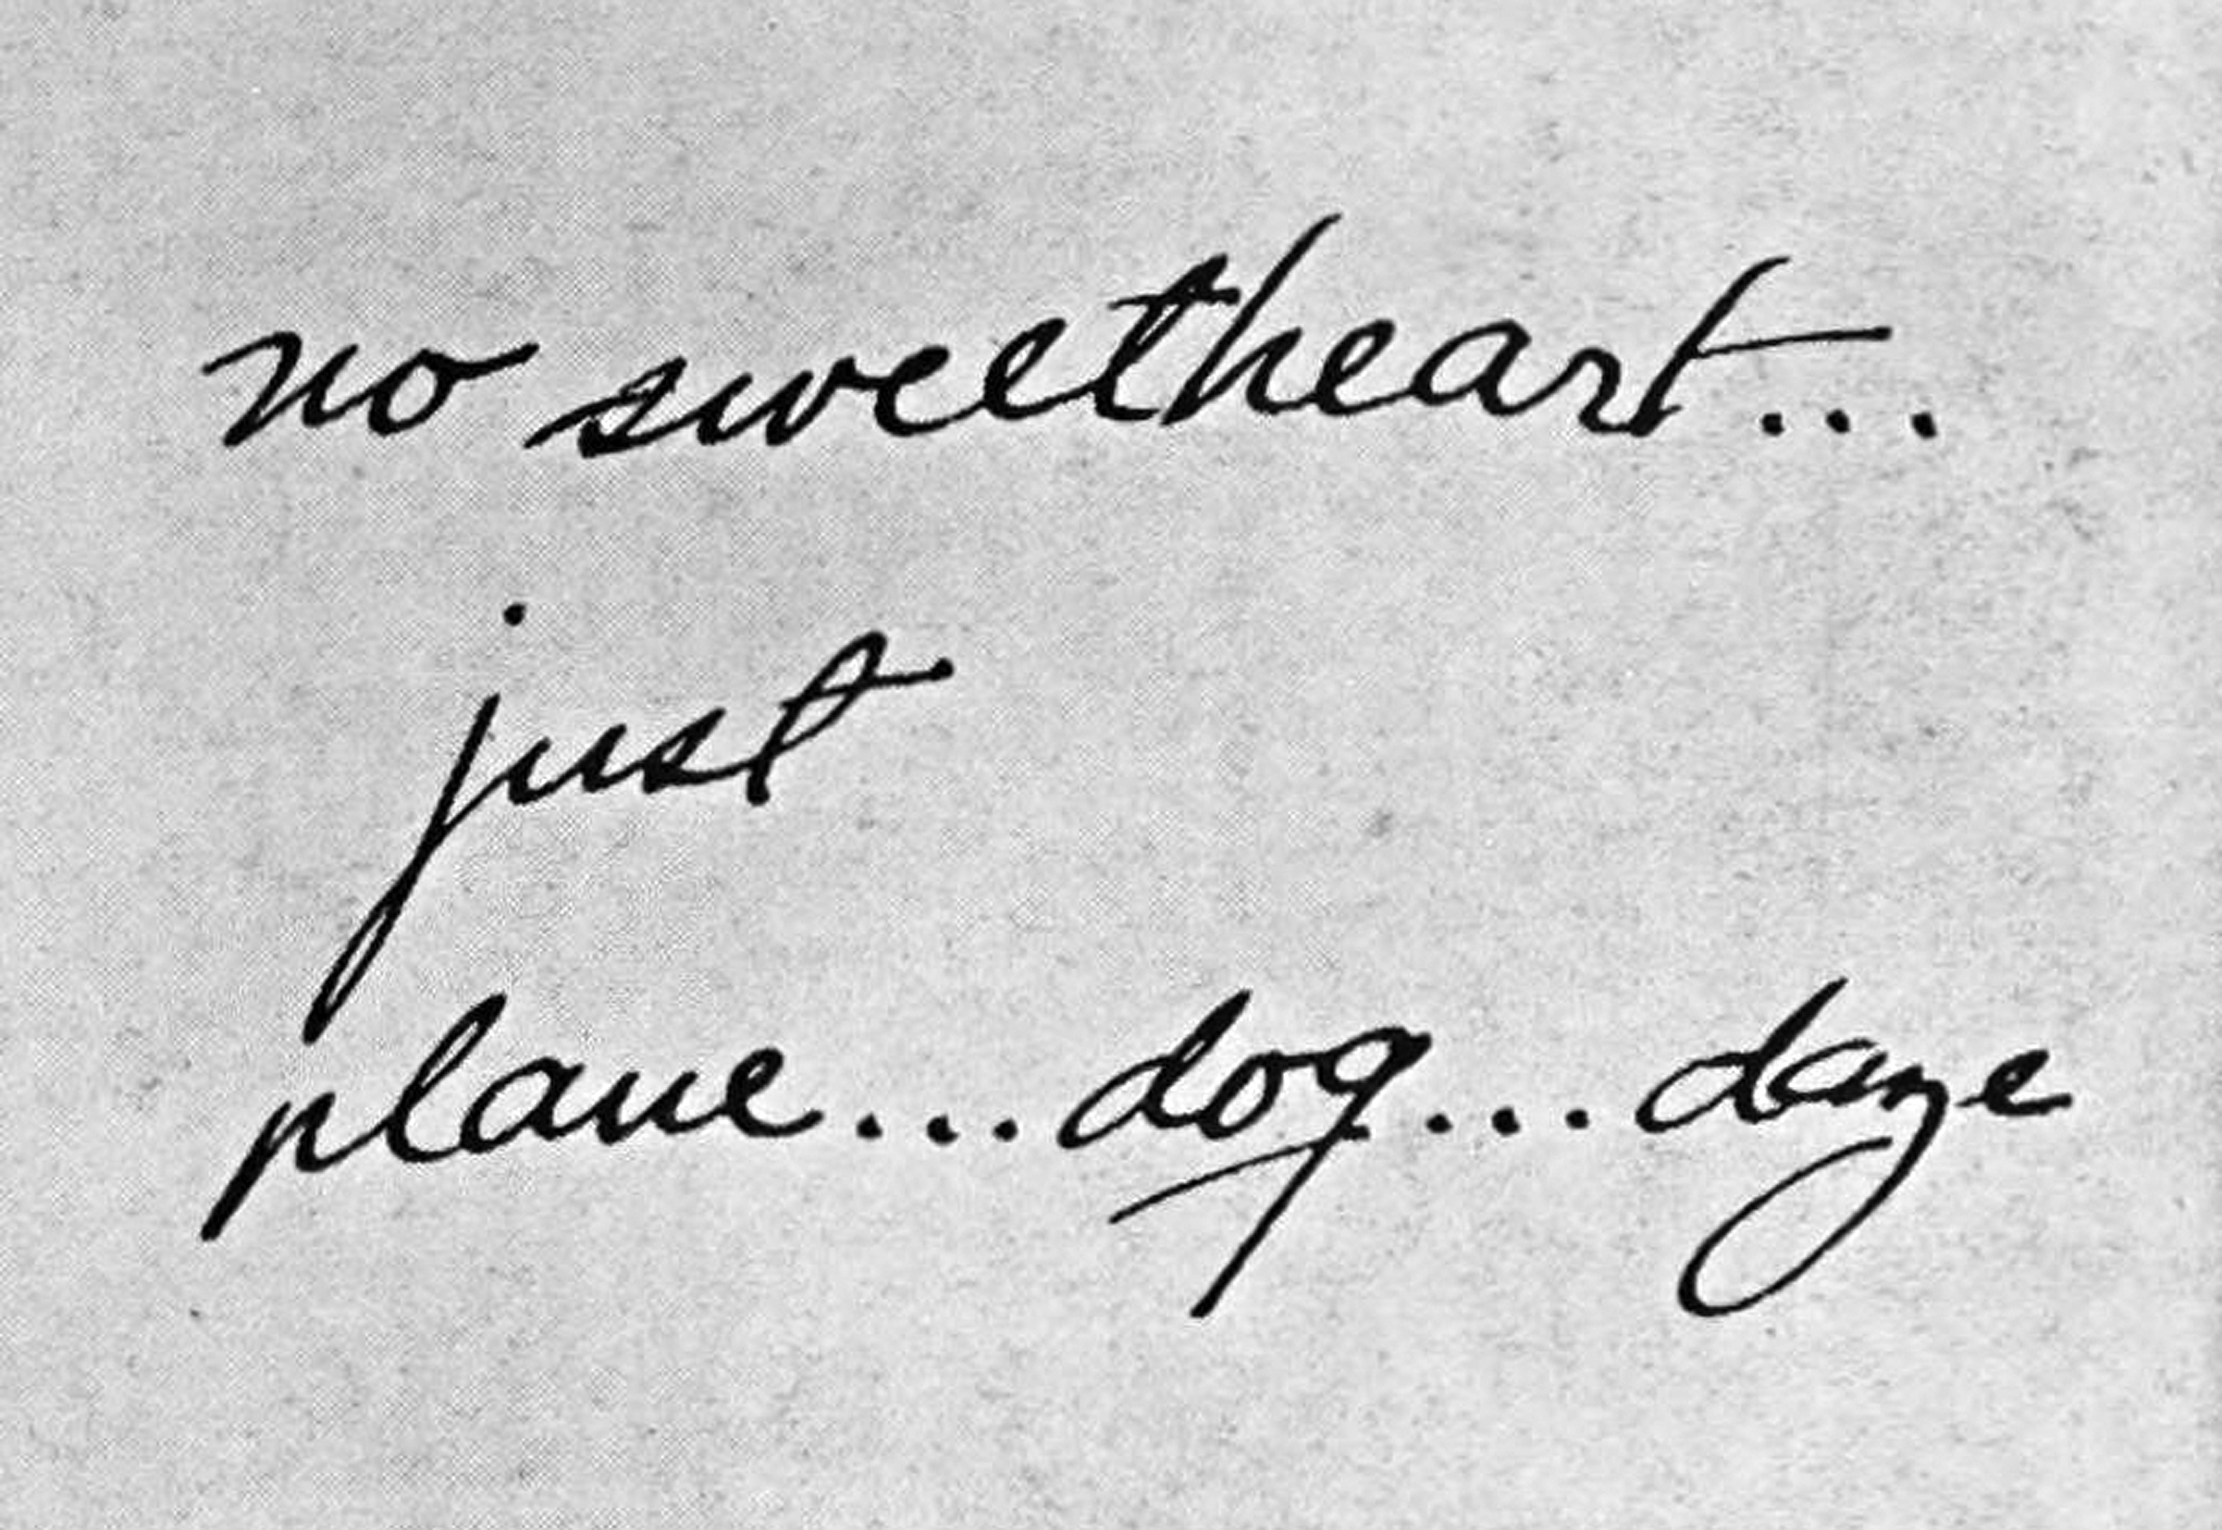 no sweetheart...
just
plane...dog...daze